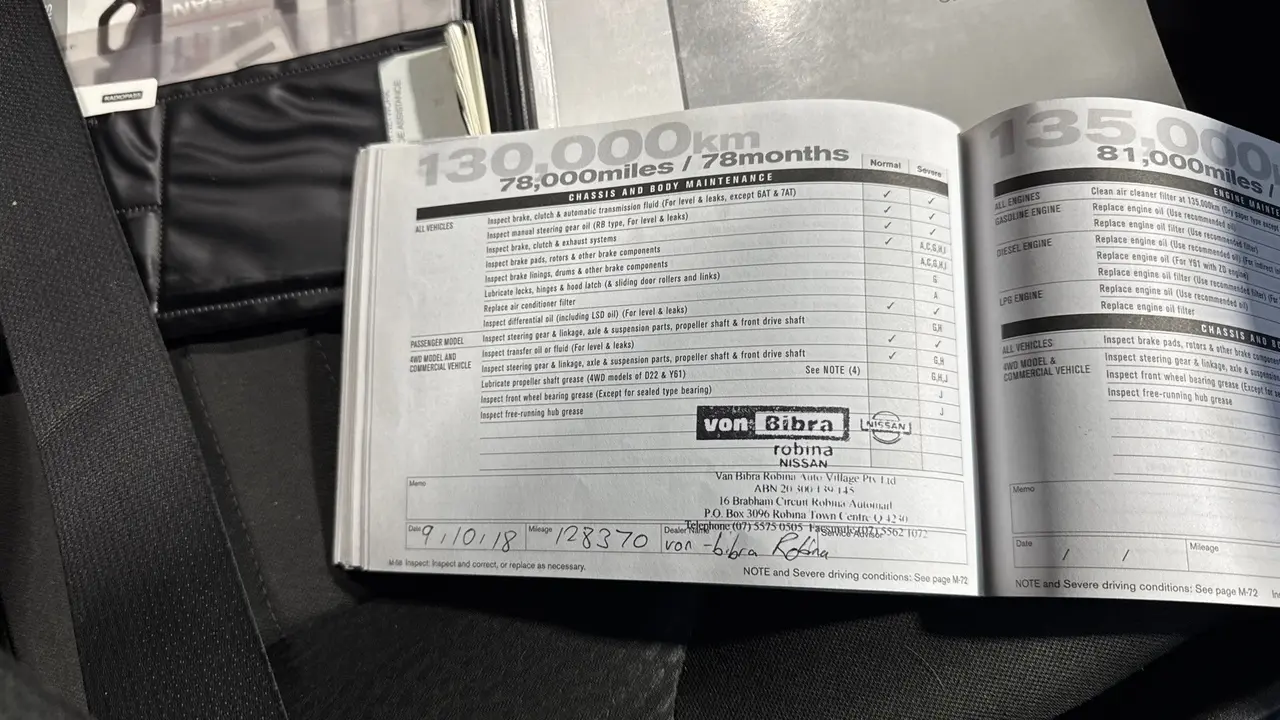 RADIOPASS
E ASSISTANCE
130,000km
78,000miles / 78months
Normal Severe
CHASSIS AND BODY MAINTENANCE
ALL VEHICLES
Inspect brake, clutch & automatic transmission fluid (For level & leaks, except 6AT & 7AT) ✓ ✓
Inspect manual steering gear oil (RB type, For level & leaks) ✓ ✓
Inspect brake, clutch & exhaust systems ✓ ✓
Inspect brake pads, rotors & other brake components ✓ A,C,G,H,I
Inspect brake linings, drums & other brake components A,C,G,H,I
Lubricate locks, hinges & hood latch (& sliding door rollers and links) G
Replace air conditioner filter A
Inspect differential oil (including LSD oil) (For level & leaks) ✓ ✓
PASSENGER MODEL
Inspect steering gear & linkage, axle & suspension parts, propeller shaft & front drive shaft G,H
4WD MODEL AND
COMMERCIAL VEHICLE
Inspect transfer oil or fluid (For level & leaks) ✓ ✓
Inspect steering gear & linkage, axle & suspension parts, propeller shaft & front drive shaft ✓ G,H
Lubricate propeller shaft grease (4WD models of D22 & Y61) See NOTE (4) G,H,J
Inspect front wheel bearing grease (Except for sealed type bearing) J
Inspect free-running hub grease J
von Bibra NISSAN
robina
NISSAN
Van Bibra Robina Auto Village Pty Ltd
ABN 20 300 139 145
16 Brabham Circuit Robina Automall
P.O. Box 3096 Robina Town Centre Q 4230
Telephone (07) 5575 0505 Facsimile (07) 5562 1072
Memo
Date 9,10,18 Mileage 128370 Dealer Name von-bibra Robina Service Advisor
M-68 Inspect: Inspect and correct, or replace as necessary.
NOTE and Severe driving conditions: See page M-72
135,000
81,000miles /
ENGINE MAINT
ALL ENGINES
Clean air cleaner filter at 135,000km (Dry paper type except
GASOLINE ENGINE
Replace engine oil (Use recommended oil)
Replace engine oil filter (Use recommended filter)
DIESEL ENGINE
Replace engine oil (Use recommended oil) (For indirect
Replace engine oil (For Y61 with ZD engine)
Replace engine oil filter (Use recommended filter) (Fo
LPG ENGINE
Replace engine oil (Use recommended oil)
Replace engine oil filter
CHASSIS AND BO
ALL VEHICLES
Inspect brake pads, rotors & other brake compone
4WD MODEL &
COMMERCIAL VEHICLE
Inspect steering gear & linkage, axle & suspension
Inspect front wheel bearing grease (Except for
Inspect free-running hub grease
Memo
Date / / Mileage
NOTE and Severe driving conditions: See page M-72 In